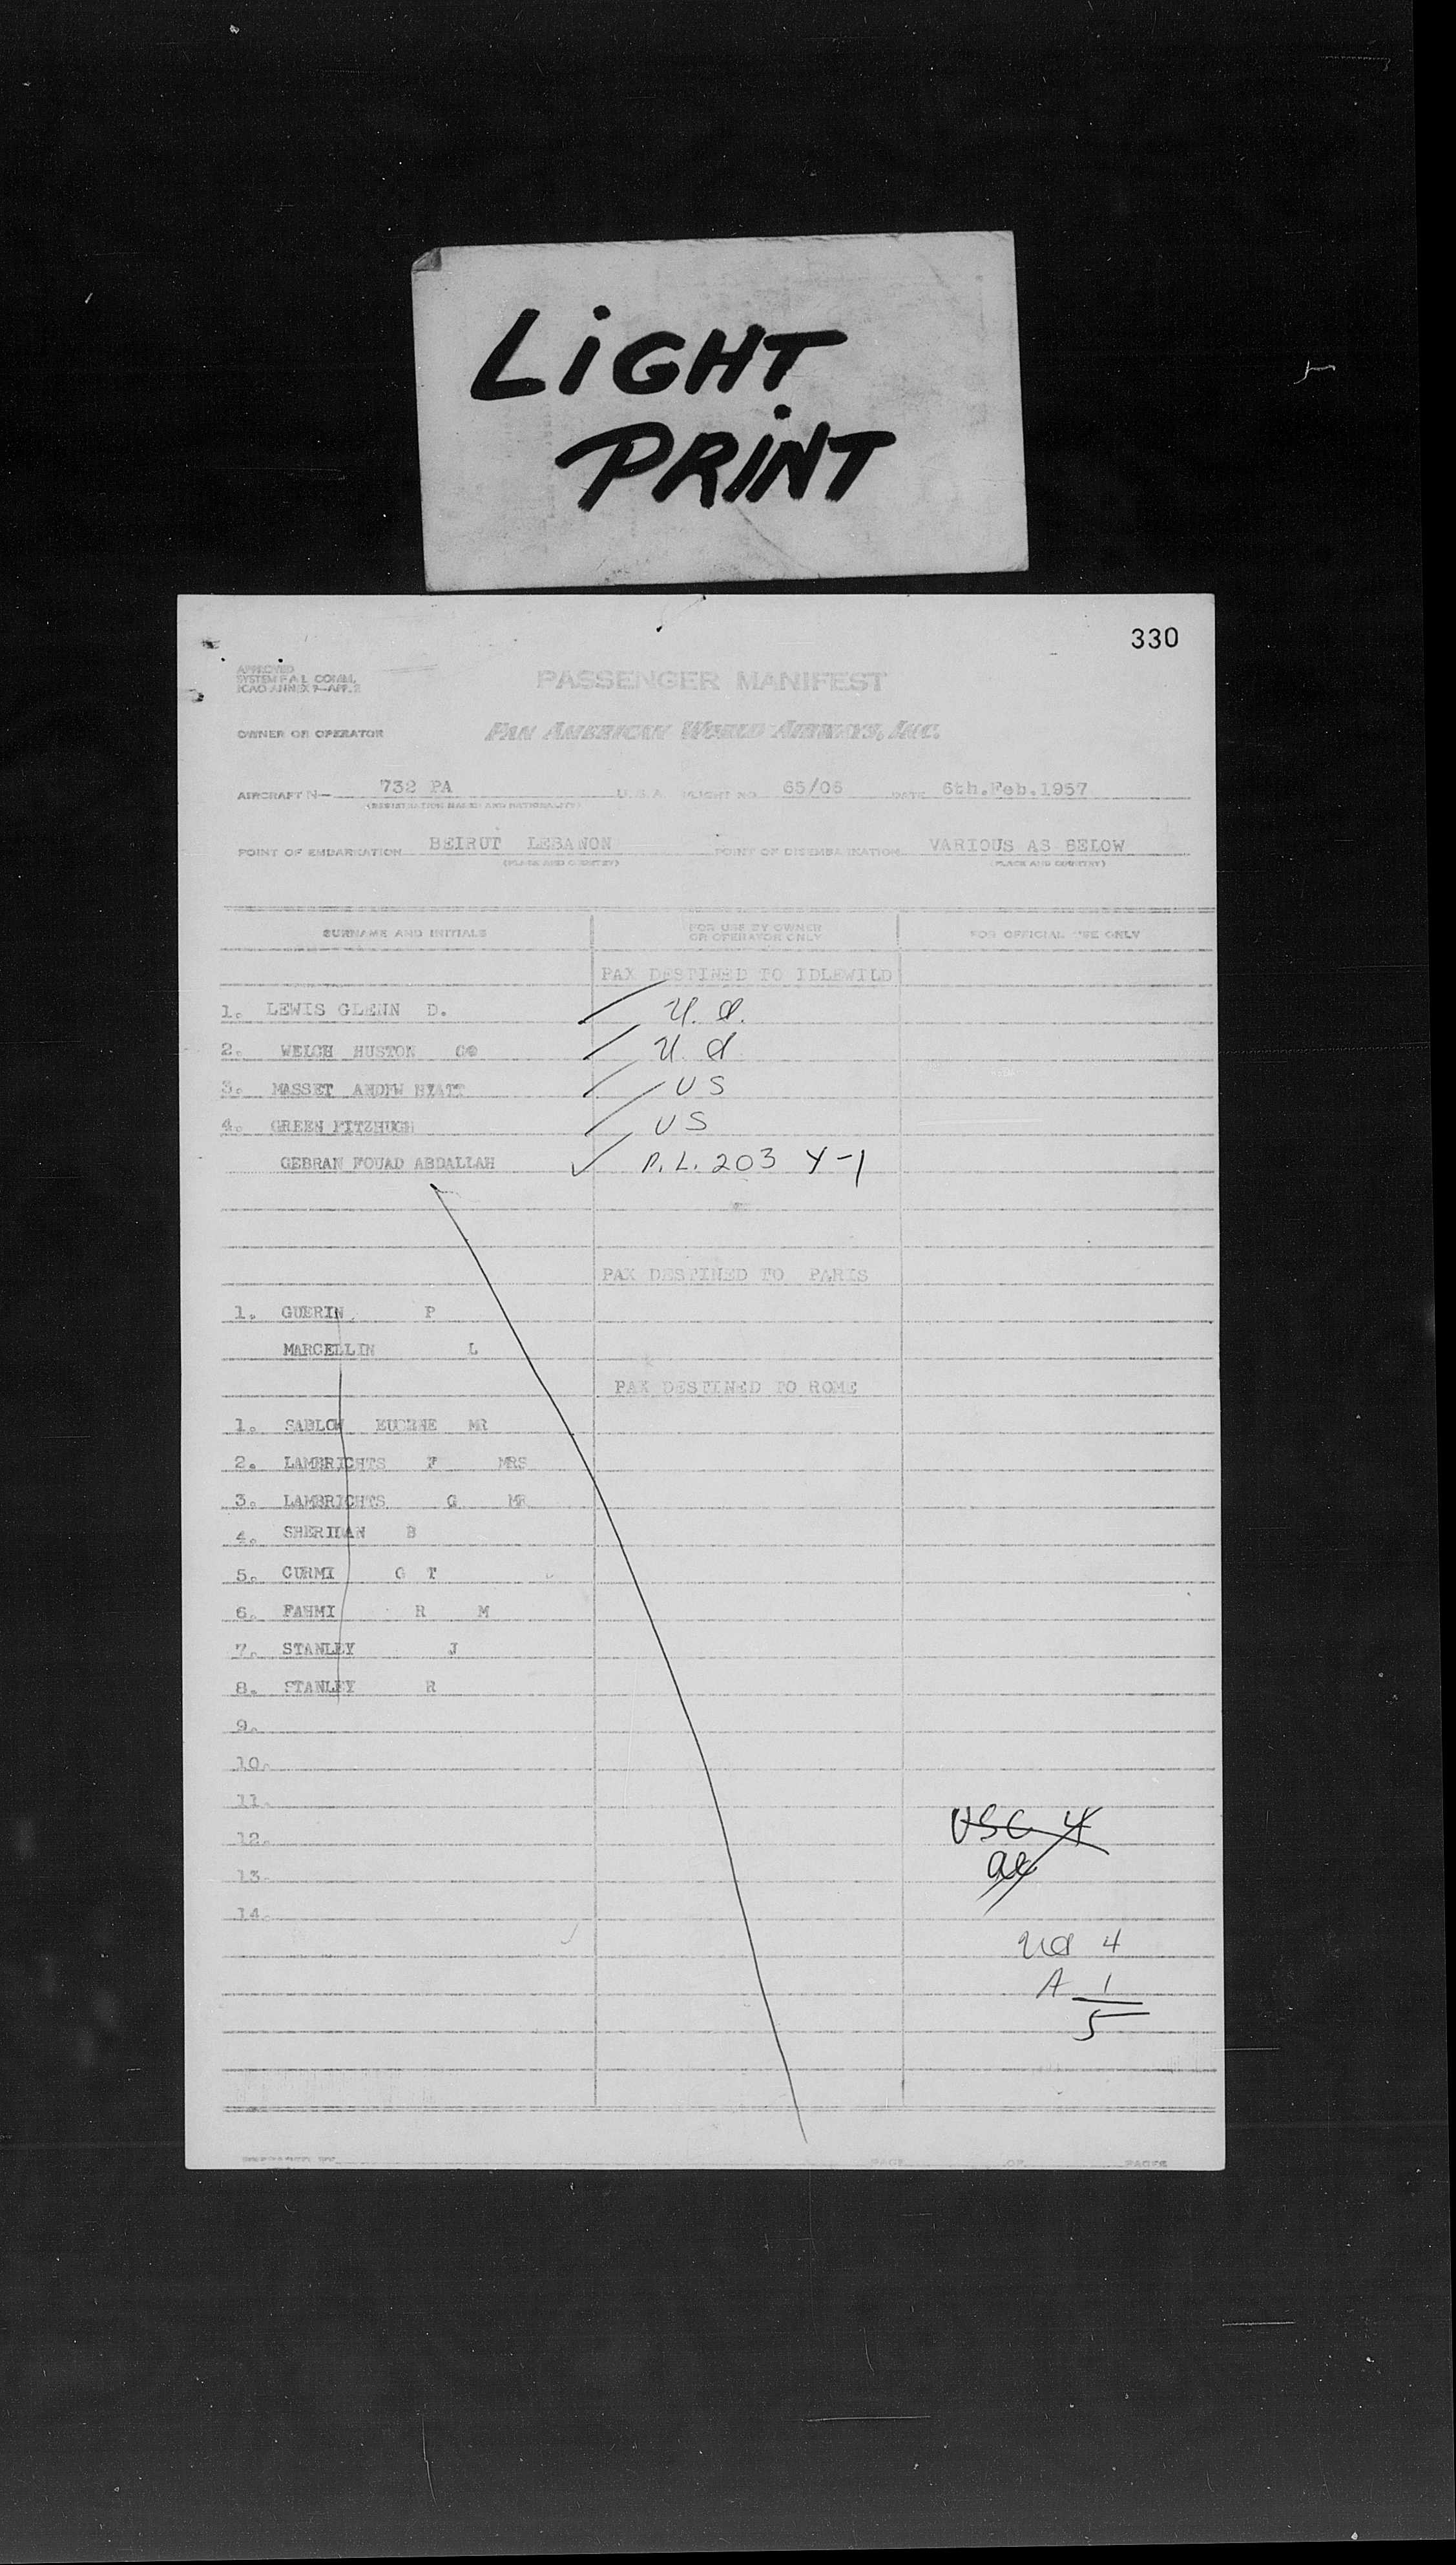 LiGHT
PRiNT
330
APPROVED
SYSTEM F.A.L. COMM.
ICAO ANNEX 9-APP. 2
PASSENGER MANIFEST
OWNER OR OPERATOR PAN AMERICAN WORLD AIRWAYS, INC.
AIRCRAFT N— 732 PA U.S.A. FLIGHT NO. 65/05 DATE 6th.Feb.1957
(REGISTRATION MARKS AND NATIONALITY)
POINT OF EMBARKATION BEIRUT LEBANON POINT OF DISEMBARKATION VARIOUS AS BELOW
(PLACE AND COUNTRY) (PLACE AND COUNTRY)
SURNAME AND INITIALS FOR USE BY OWNER OR OPERATOR ONLY FOR OFFICIAL USE ONLY
PAX DESTINED TO IDLEWILD
1. LEWIS GLENN D. U.S.
2. WELCH HUSTON U S
3. MASSET HYATT US
4. GREEN FITZHUGH US
GEBRAN FOUAD ABDALLAH P.L. 203 Y-1
PAX DESTINED TO PARIS
1. GUERIN P
MARCELLIN L
PAX DESTINED TO ROME
1. SABLOW EUGENE MR
2. LAMBRICHTS F MRS
3. LAMBRICHTS G MR
4. SHERIDAN B
5. CURMI G T
6. FAHMI R M
7. STANLEY J
8. STANLEY R
9.
10.
11.
12. USC 4
13.
14.
US 4
A 1
5
PREPARED BY PAGE OF PAGES